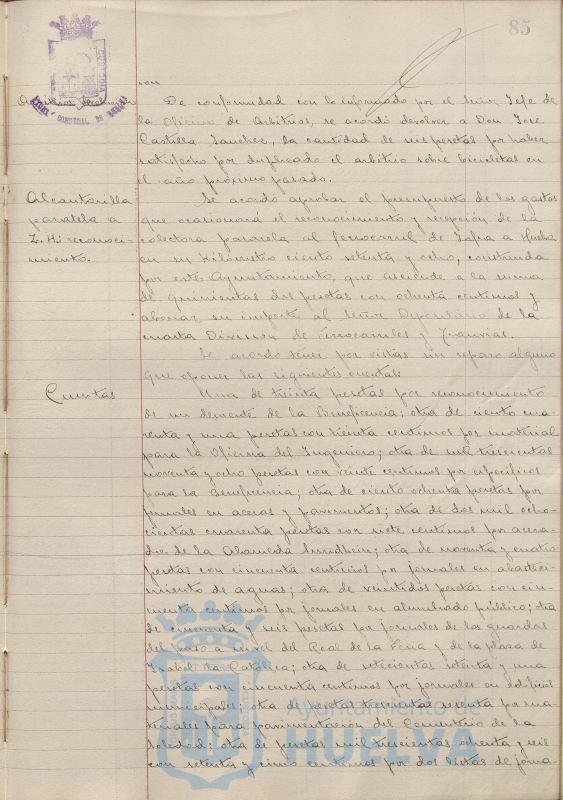 85
ron
Arbitrios
De conformidad con lo informado por el Señor Jefe de
la Oficina de Arbitrios, se acordó devolver a Don José
Castilla Sanchez, la cantidad de seis pesetas por haber
satisfecho por duplicado el arbitrio sobre bicicletas en
el año próximo pasado.
Alcantarilla
paralela a
Z. H: reconoci-
miento.
Se acordó aprobar el presupuesto de los gastos
que ocasionará el reconocimiento y recepción de la
colectora paralela al ferrocarril de Zafra a Huelva
en su kilómetro ciento setenta y ocho, construida
por este Ayuntamiento, que asciende a la suma
de quinientas dos pesetas con ochenta centimos y
abonar su importe al Señor Depositario de la
cuarta Division de ferrocarriles y Tranvias.
Se acordó tener por vistas sin reparo alguno
que oponer las siguientes cuentas:
Cuentas
Una de treinta pesetas por reconocimiento
de un demente de la Beneficencia; otra de ciento cua-
renta y una pesetas con treinta centimos por material
para la Oficina del Ingeniero; otra de mil trescientas
noventa y ocho pesetas con veinte centimos por especificos
para la Beneficencia; otra de ciento ochenta pesetas por
jornales en aceras y pavimentos; otra de dos mil ocho-
cientas cuarenta pesetas con siete centimos por acera-
do de la Alameda Sundheim; otra de noventa y cuatro
pesetas con cincuenta centimos por jornales en abasteci-
miento de aguas; otra de veintidos pesetas con cin-
cuenta centimos por jornales en alumbrado público; otra
de cincuenta y seis pesetas por jornales de los guardas
del paso a nivel del Real de la Feria y de la plaza de
Isabel la Católica; otra de setecientas setenta y una
pesetas con cincuenta centimos por jornales en edificios
municipales; otra de pesetas trescientas sesenta por ma-
teriales para pavimentación del Cementerio de la
Soledad; otra de pesetas mil trescientas ochenta y seis
con setenta y cinco centimos por dos listas de jorna-
Ayuntamiento de
HUELVA